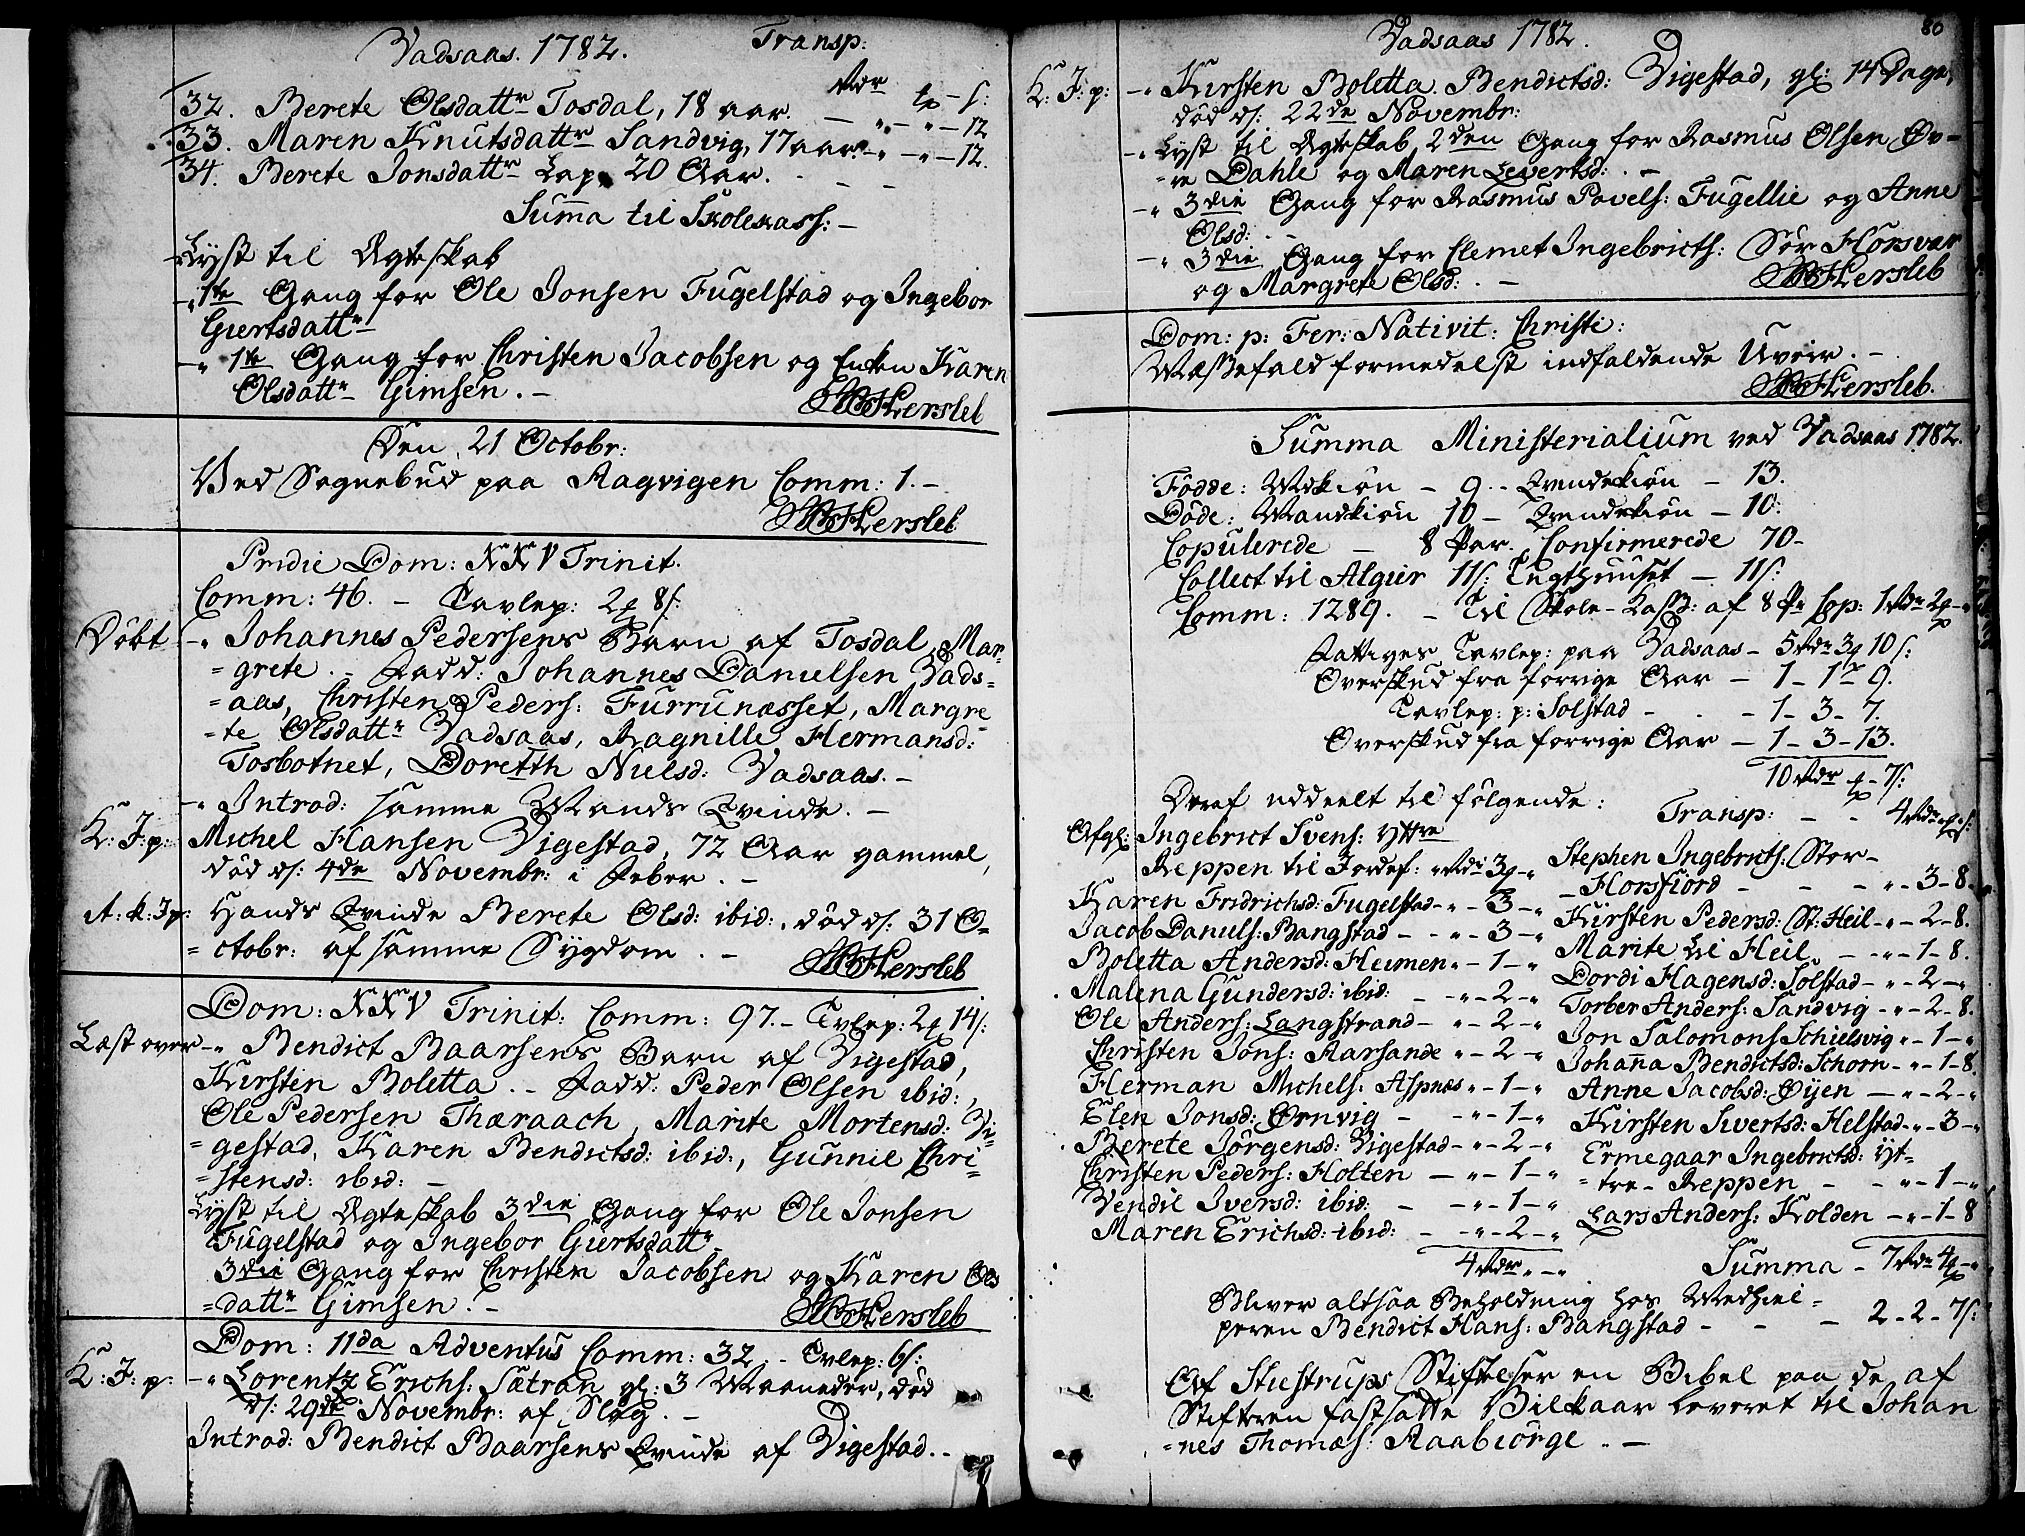 Vadsaas. 1782. Transp:
Rdr
32. Berete Olsdattr Tosdal, 18 aar. —
33. Maren Knutsdattr Sandvig, 17 aar. - „ - „ - 12
34. Berete Jonsdattr Lap, 20 Aar. - „ - „ - 12.
Summa til Skolekass: —
Lyst til Ægteskab
1te Gang for Ole Jonsen Fugelstad og Ingebor
Giertsdattr
- „ 1te Gang for Christen Jacobsen og Enken Karen
Olsdattr Gimsen. —
Hersleb
Den 21 Octobr:
Ved Sognebud paa Aagvigen Comm: 1. —
Hersleb
Pridie Dom: XXV Trinit.
Comm: 46. — Tavlep: 2 8s:
Døbt - „ Johannes Pedersens Barn af Tosdal, Mar-
= grete. — Fadd: Johannes Danielsen Vads=
= aas, Christen Peders: Furrunæsset, Margre
= te Olsdattr Vadsaas, Ragnille Hermansd:
Tosbotnet, Doretth Nielsd: Vadsaas. —
- „ Introd: samme Mands Qvinde. —
K: J: p: Michel Hansen Vigestad, 72 Aar gammel,
død d: 4de Novembr: i Feber. —
A: k: J: p: Hands Qvinde Berete Olsd: ibid:, død d: 31 O=
= ctobr: af samme Sygdom. —
Hersleb
Dom: XXV Trinit: Comm: 97. — Tvlep: 2 14s:
Læst over - „ Bendict Baarsens Barn af Vigestad,
Kirsten Boletta. — Fadd: Peder Olsen ibid:,
Ole Pedersen Thæraach, Marite Mortensd: Vi=
= gestad, Karen Bendictsd: ibid:, Gunnil Chri=
= stensd: ibid: —
Lyst til Ægteskab 3die Gang for Ole Jonsen
Fugelstad og Ingebor Giertsdattr
3die Gang for Christen Jacobsen og Karen Ols
= dattr Gimsen. —
Hersleb
Dom: 11da Adventus Comm: 32. — Tvlep: 6s:
K: J: p: - „ Lorentz Erichs: Sætran gl: 3 Maaneder, død
d: 29de Novembr: af Slag. —
Introd: Bendict Baarsens Qvinde af Vigestad. —
Vadsaas 1782.
80
K: J: p: - „ Kirsten Boletta Bendictsd: Vigestad, gl: 14 Dage,
død d: 22de Novembr:
- „ Lyst til Ægteskab 2den Gang for Rasmus Olsen Øv-
= re Dahle og Maren Levertsd: . —
- „ 3die Gang for Rasmus Povels: Fugellie og Anne
Olsd: . —
- „ 3die Gang for Clemet Ingebricts: Sør Horsvær
og Margrete Olsd: . —
Hersleb
Dom: p: Fer: Nativit: Christi:
Messefald formedelst indfaldende Uveir. —
Hersleb.
Summa Ministerialium ved Vadsaas 1782.
Fødde: Mdkiøn — 9. - Qvindekiøn — 13.
Døde: Mandkiøn 10 — Qvindekiøn — 10:
Copulerede — 8 Par. Confirmerede 70 -
Collect til Algier 11s: Tugthuuset — 11s:
Comm: 1289. — Til Skole-Kass: af 8 Pr Cop: 1Rdr 2 - „
Fattiges Tavlep: paa Vadsaas — 5Rdr 3 10s:
Overskud fra forrige Aar — 1 - 1 - 9.
Tavlep: p: Solstad - - 1 - 3 - 7.
Overskud fra forrige Aar — 1 - 3 - 13.
10Rdr - 7s:
Deraf uddeelt til følgende:
Afgl: Ingebrict Svens: Yttre
Reppen til Jordef: „Rdr 3 - „
Karen Fridrichsd: Fugelstad - „ - 3 - „
Jacob Daniels: Bangstad - - „ - 3 - „
Boletta Andersd: Heimen „ - 1 - „
Malena Gundersd: ibid: - - „ - 2 - „
Ole Anders: Langstrand - „ - 2 - „
Christen Jons: Aarsande „ - 2 - „
Herman Michels: Aspnæs „ - 1 - „
Elen Jonsd: Ørnvig - - „ - 1 - „
Berete Jørgensd: Vigestad - „ - 2 - „
Christen Peders: Holten — „ - 1 - „
Vendil Iversd: ibid: - - „ - 1 - „
Maren Erichsd: ibid: - - „ - 2 - „
4Rdr „ - „
Transp: - - 4Rdr
Stephen Ingebricts: Stor-
- Horsfiord - - - „ - 3 - 8.
Kirsten Pedersd: St: Heil - „ - 2 - 8.
Marite Lil Heil - - „ - 1 - 8.
Dordi Hagensd: Solstad - „ - 2 - „
Torber Anders: Sandvig - „ - 2 - 8.
Jon Salomons Schielsvig „ - 1 - „
Johanna Bendictsd: Schorn - „ - 1 - 8.
Anne Jacobsd: Øyen — „ - 2 - „
Kirsten Sivertsd: Helstad - „ - 3 - „
Ermegaar Ingebrictsd: Yt=
= tre - Reppen - - „ - 1 - „
Lars Anders: Kolden — „ - 1 - 8
Summa - 7Rdr 4 - „
Bliver altsaa Beholdning hos Medhiel=
peren Bendict Hans: Bangstad - - - 2 - 2 - 7s:
Af Stistrups Stiftelser en Bibel paa de af
Stifteren fastsatte Vilkaar leveret til Johan
= nes Thomæs: Aaabiørge. —